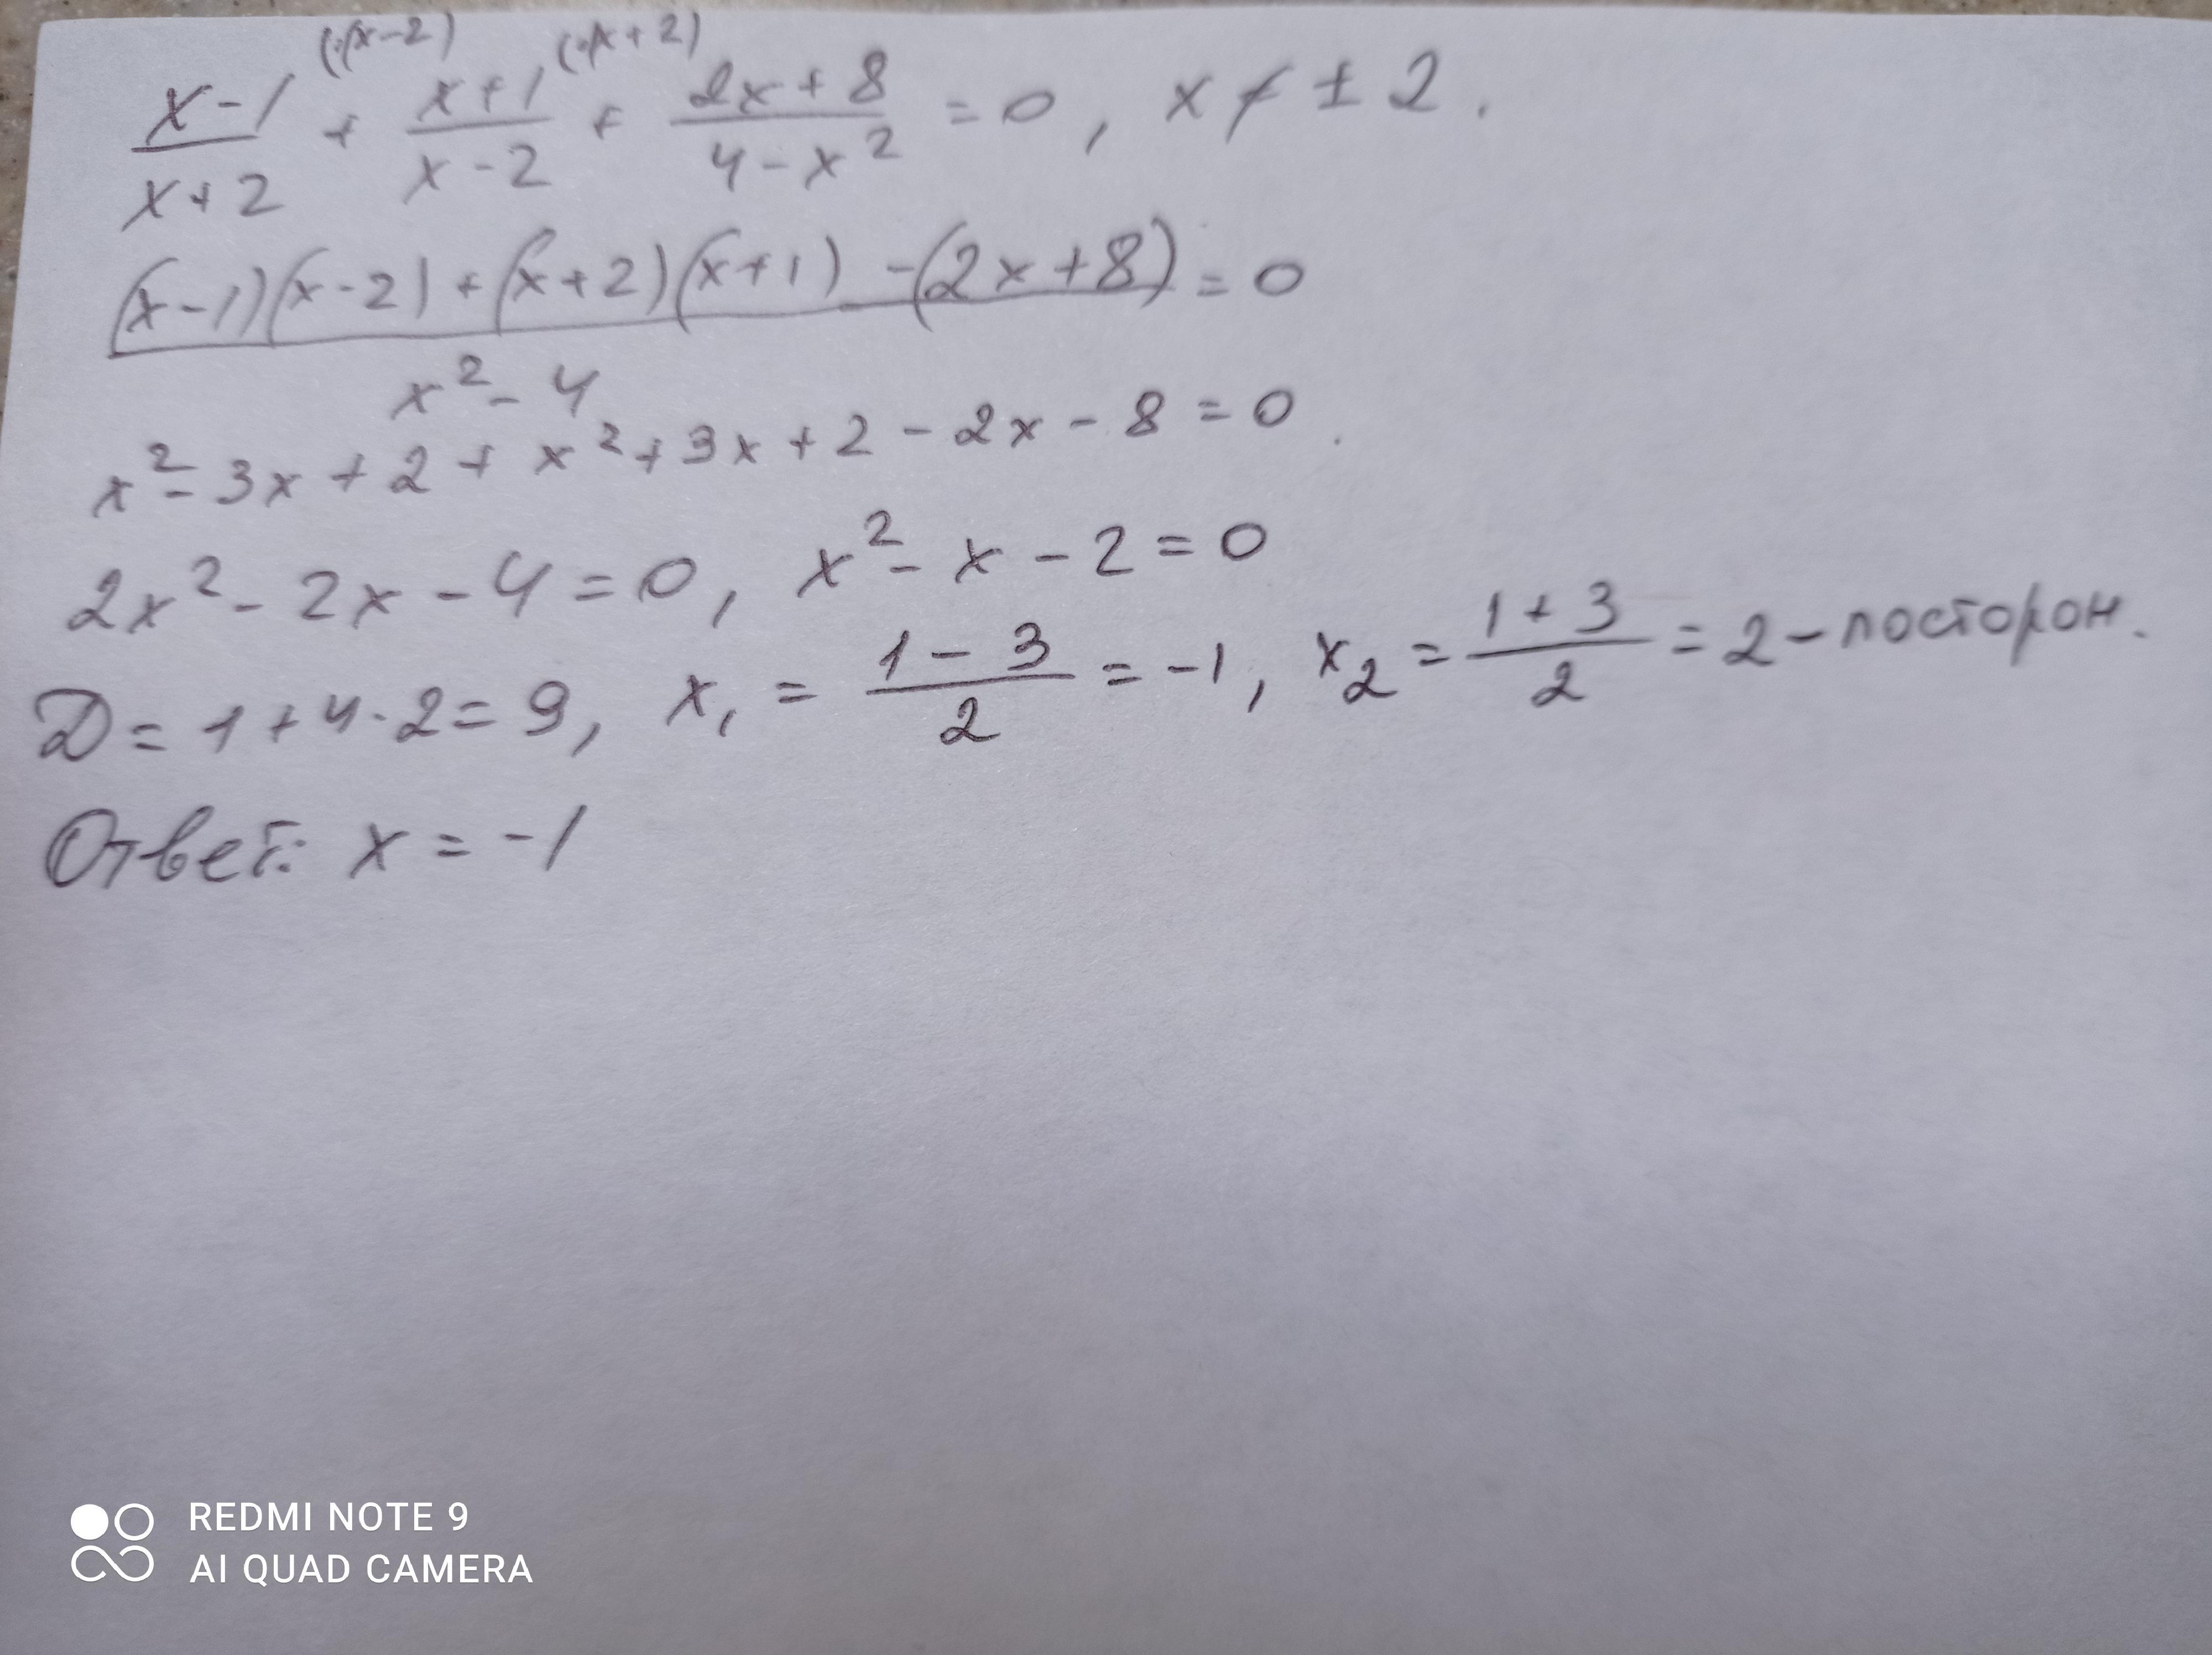 (·(x-2) (·x+2)
x-1/x+2 + x+1/x-2 + 2x+8/4-x² = 0, x ≠ ±2.
(x-1)(x-2)+(x+2)(x+1)-(2x+8)/x²-4 = 0
x²-3x+2+x²+3x+2-2x-8=0.
2x²-2x-4=0, x²-x-2=0
D=1+4·2=9, x₁ = 1-3/2 = -1, x₂ = 1+3/2 = 2-посторон.
Ответ: x = -1
REDMI NOTE 9
AI QUAD CAMERA